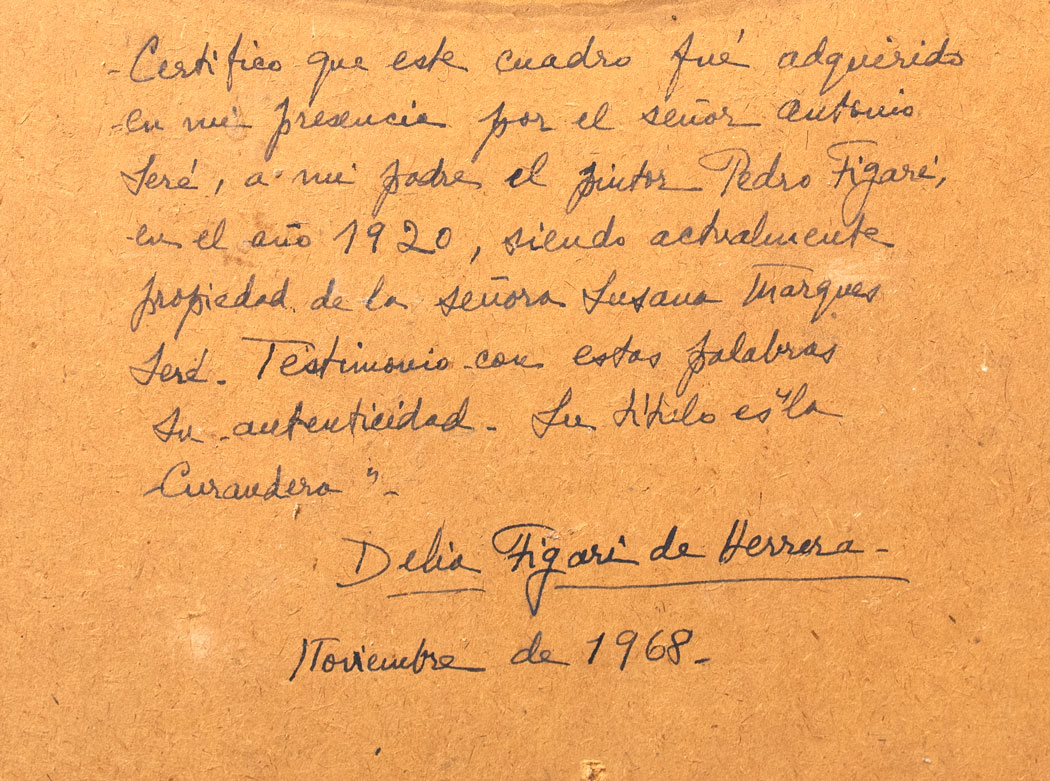 Certifico que este cuadro fué adquirido
en mi presencia por el señor Antonio
Seré, a mi padre el pintor Pedro Figari,
en el año 1920, siendo actualmente
propiedad de la señora Susana Marques
Seré. Testimonio con estas palabras
su autenticidad - Su título es "la
Curandera" -
Delia Figari de Herrera -
Noviembre de 1968 -